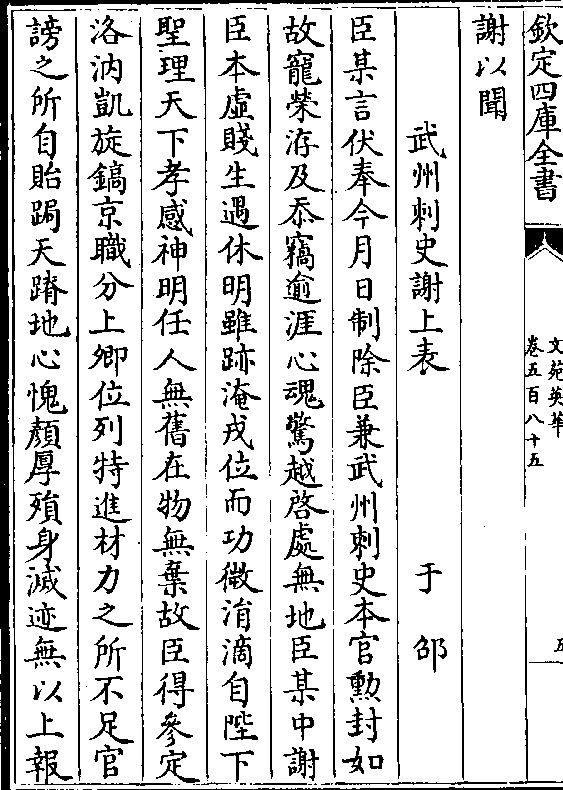 欽定四庫全書
文苑英華
卷五百八十五
五
謝以聞
武州刺史謝上表
于邵
臣某言伏奉今月日制除臣兼武州刺史本官勲封如
故寵榮洊及忝竊逾涯心魂驚越啓處無地臣某中謝
臣本虛賤生遇休明雖跡淹戎位而功微涓滴自陛下
聖理天下孝感神明任人無舊在物無棄故臣得參定
洛汭凱旋鎬京職分上卿位列特進材力之所不足官
謗之所自貽跼天蹐地心愧顏厚殞身滅迹無以上報